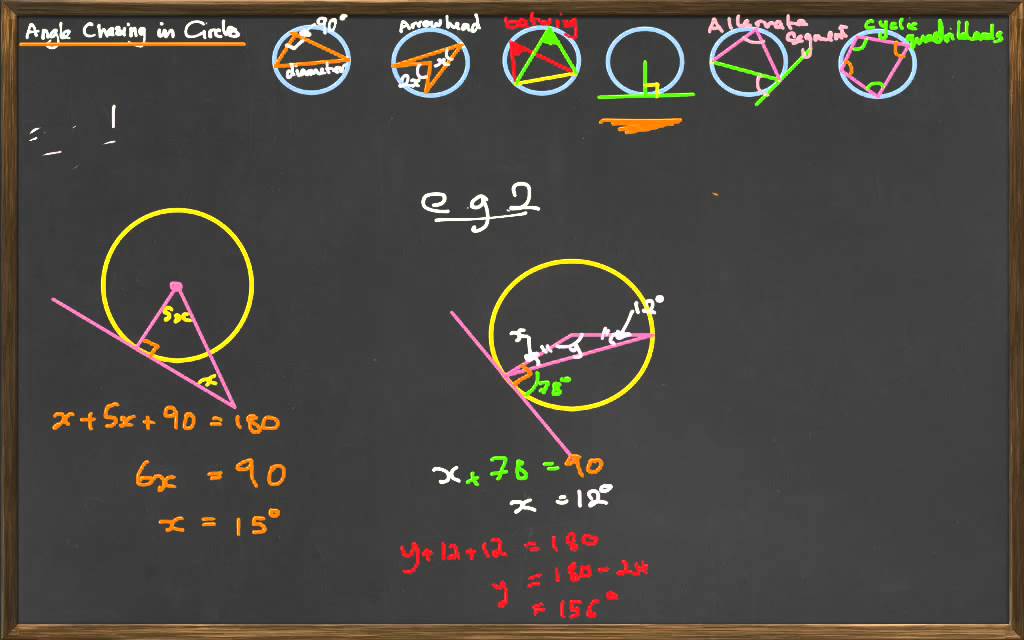 Angle Chasing in Circles
90°
diameter
Arrowhead
x
2x
batwing
Alternate
segment
cyclic
quadrilaterals
= 1
e.g 2
5x
x
x + 5x + 90 = 180
6x = 90
x = 15°
12°
x
y
78°
x + 78 = 90
x = 12°
y + 12 + 12 = 180
y = 180 - 24
= 156°